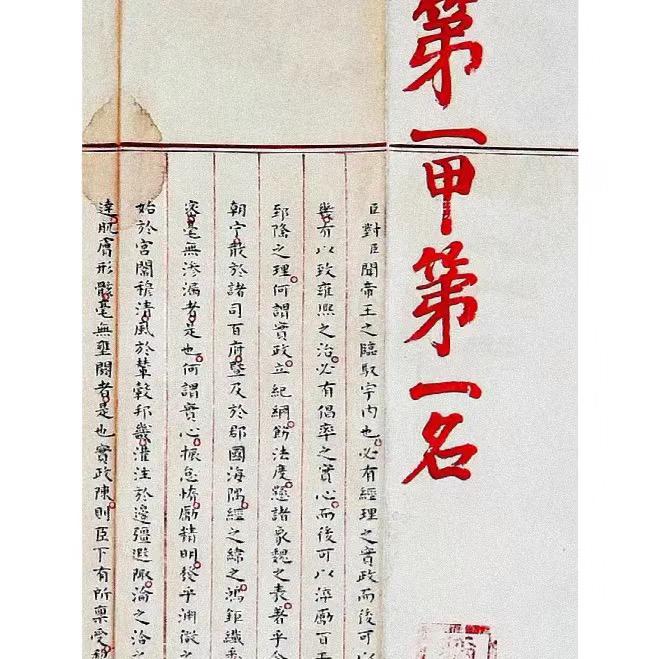 第一甲第一名
臣對臣聞帝王之臨馭宇內也必有經理之實政而後可以
幾有以致雍熙之治必有倡率之實心而後可以淬勵百工
郅隆之理何謂實政立紀綱飭法度懸諸象魏之表著乎令
朝宁散於諸司百府暨及於郡國海隅經之緯之鴻鉅纖悉
密毫無滲漏者是也何謂實心振怠惰勵精明發乎淵微之
始於宮闈穆清風於輦轂邦畿灌注於邊疆遐陬淪之洽之
達肌膚形骸毫無壅閼者是也實政陳則臣下有所稟受